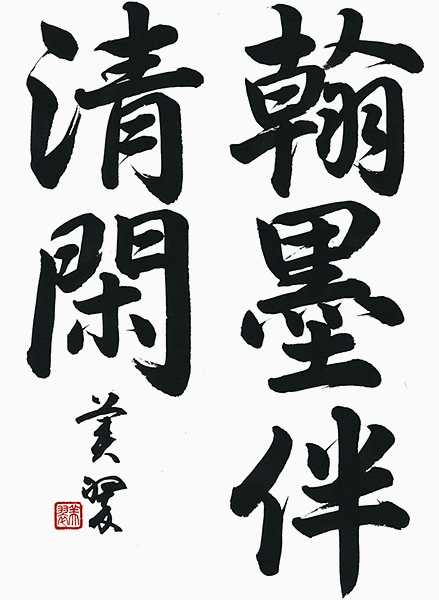 翰墨伴
清閑
美翠